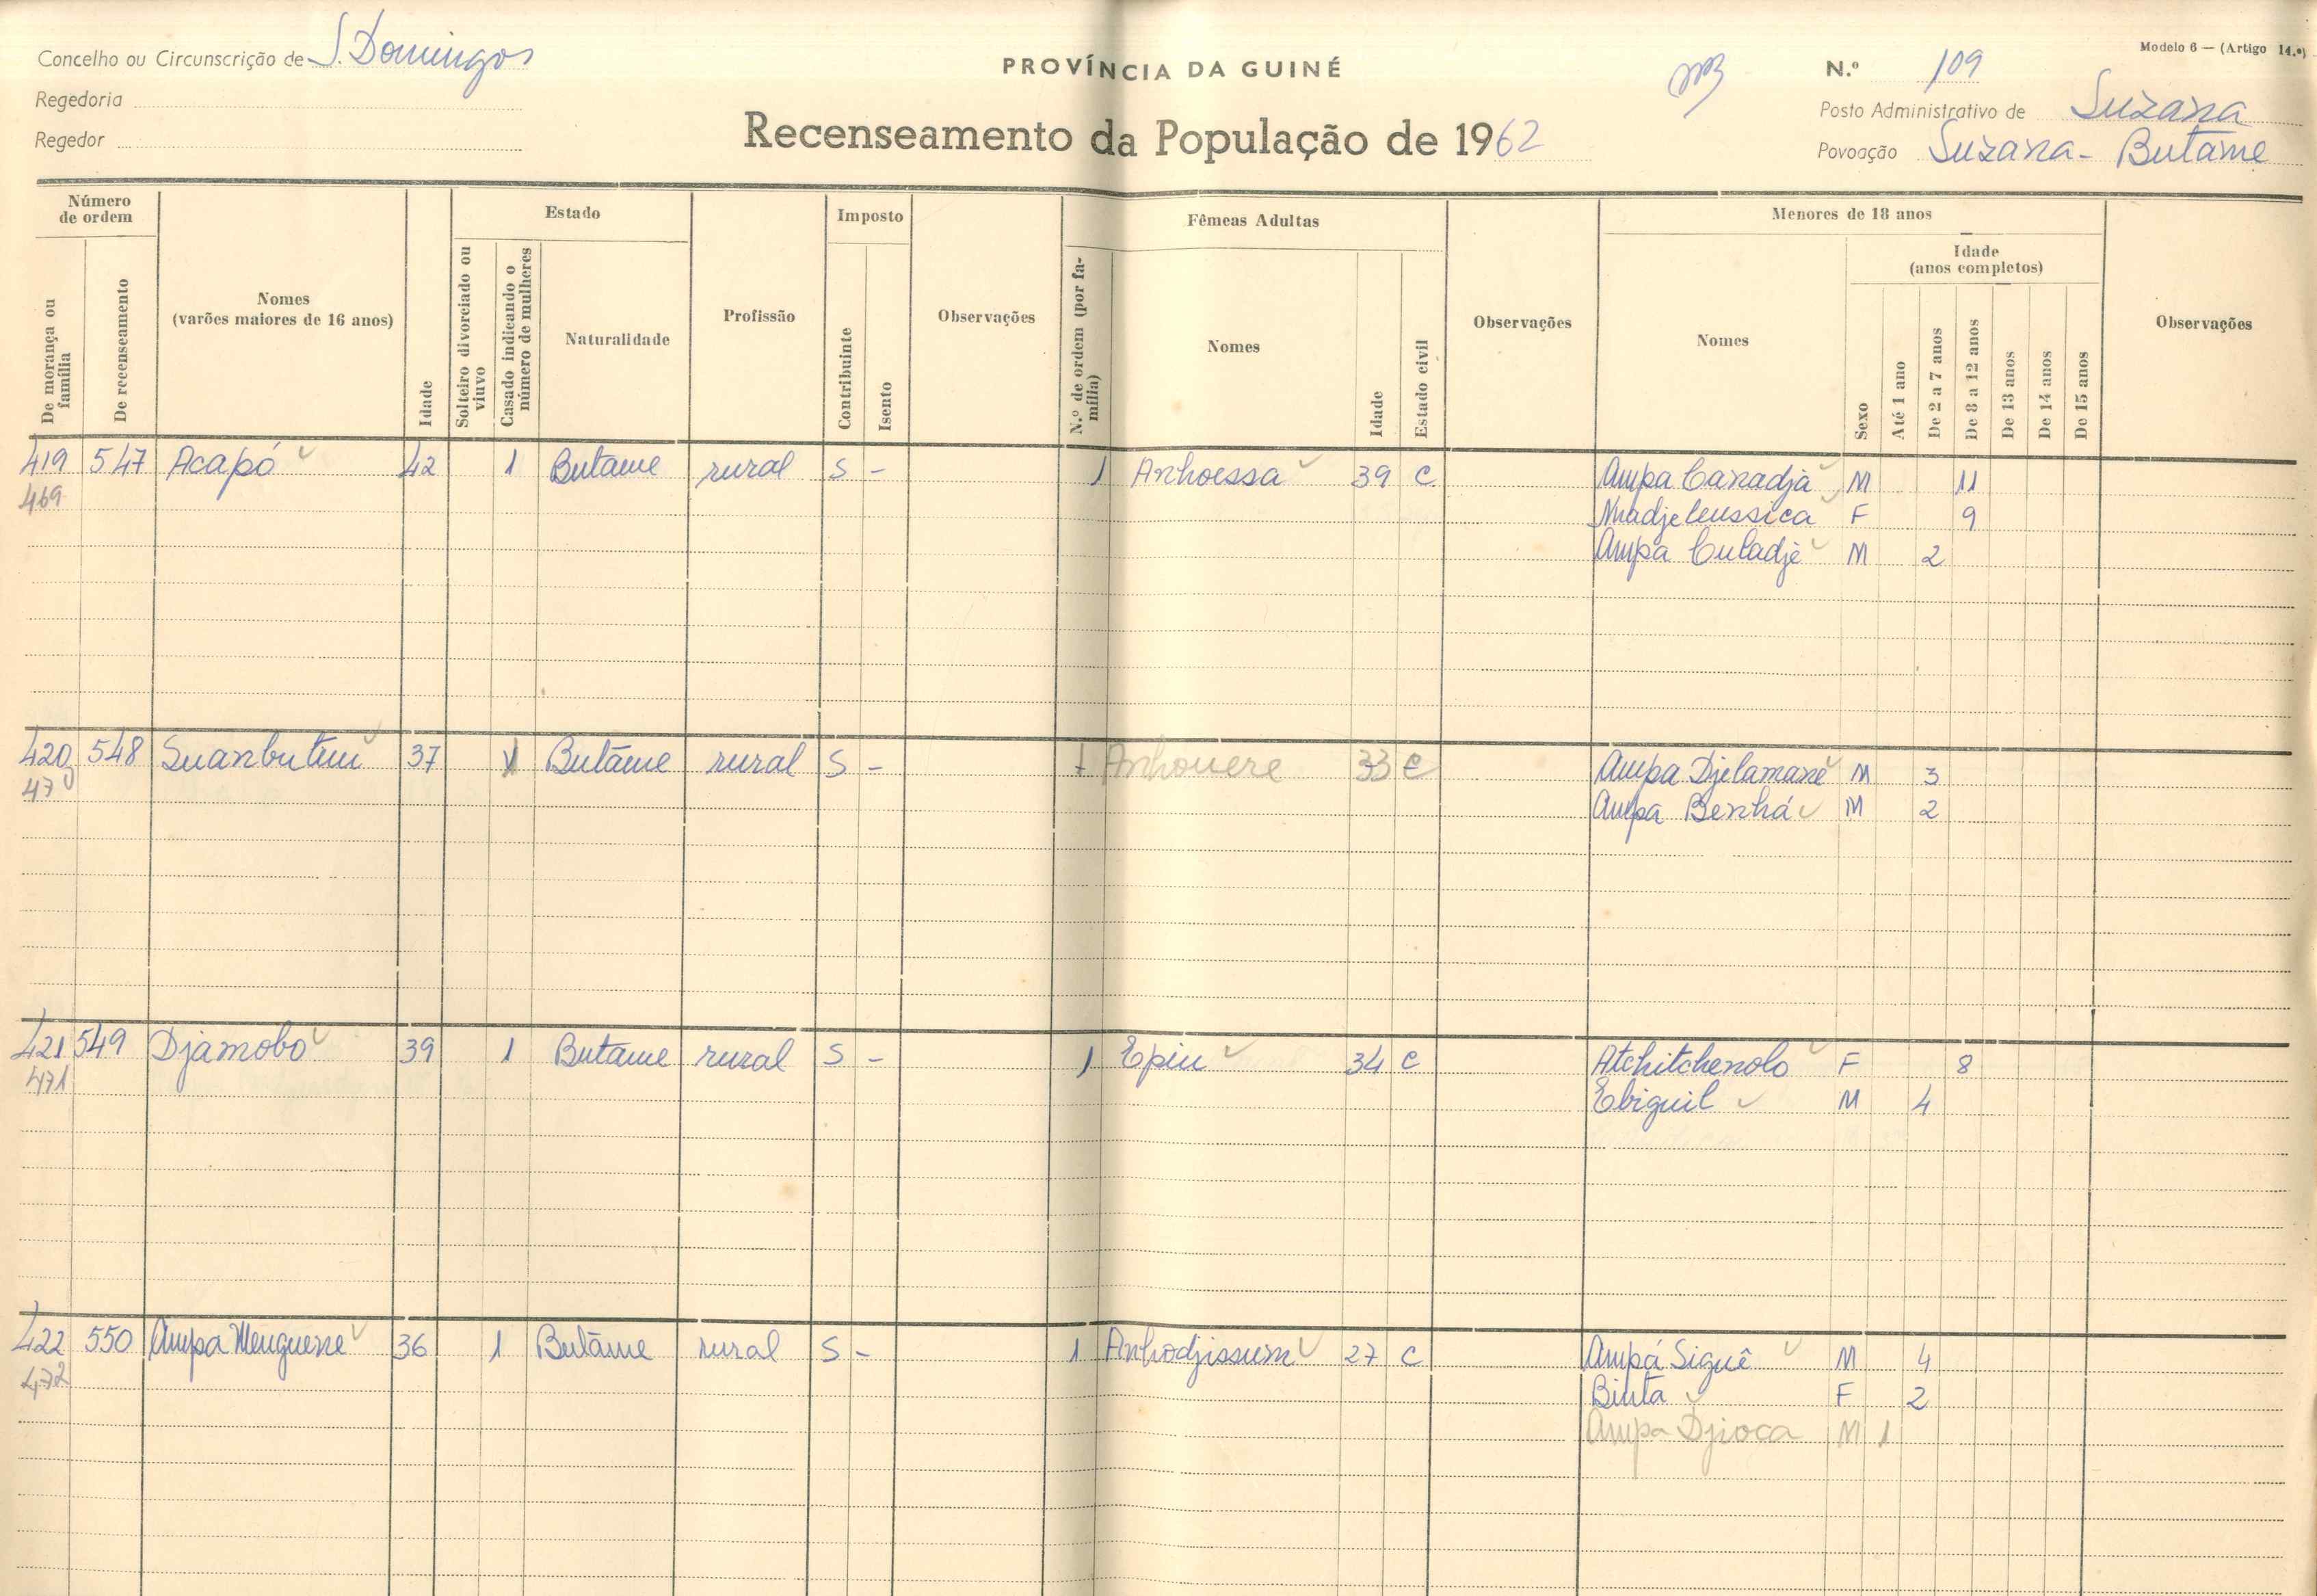 Modelo 6 — (Artigo 14.º)
Concelho ou Circunscrição de S. Domingos
PROVÍNCIA DA GUINÉ
N.º 109
Regedoria
Posto Administrativo de Suzana
Regedor
Recenseamento da População de 1962
Povoação Suzana - Butame
Número de ordem
De morança ou família
De recenseamento
Nomes
(varões maiores de 16 anos)
Idade
Estado
Solteiro divorciado ou viuvo
Casado indicando o número de mulheres
Naturalidade
Profissão
Imposto
Contribuinte
Isento
Observações
N.º de ordem (por família)
Fêmeas Adultas
Nomes
Idade
Estado civil
Observações
Menores de 18 anos
Nomes
Sexo
Idade
(anos completos)
Até 1 ano
De 2 a 7 anos
De 8 a 12 anos
De 13 anos
De 14 anos
De 15 anos
Observações
419 547 Acapó 42 1 Butame rural S - 1 Anhoessa 39 C Ampa Canadjá M 11
469 F 9
Ampa Culadjé M 2
420 548 37 Butãme rural S - 1 Anhouere 33 C Ampa Djelamané M 3
470 Ampa Benhá M 2
421 549 Djamobo 39 1 Butame rural S - 1 Epin 34 C Atchitchenolo F 8
471 Ebiguil M 4
422 550 Ampa Menguene 36 1 Butãme rural S - 1 Anhodjissum 27 C Ampá Siguê M 4
472 Binta F 2
Ampa Djioca M 1